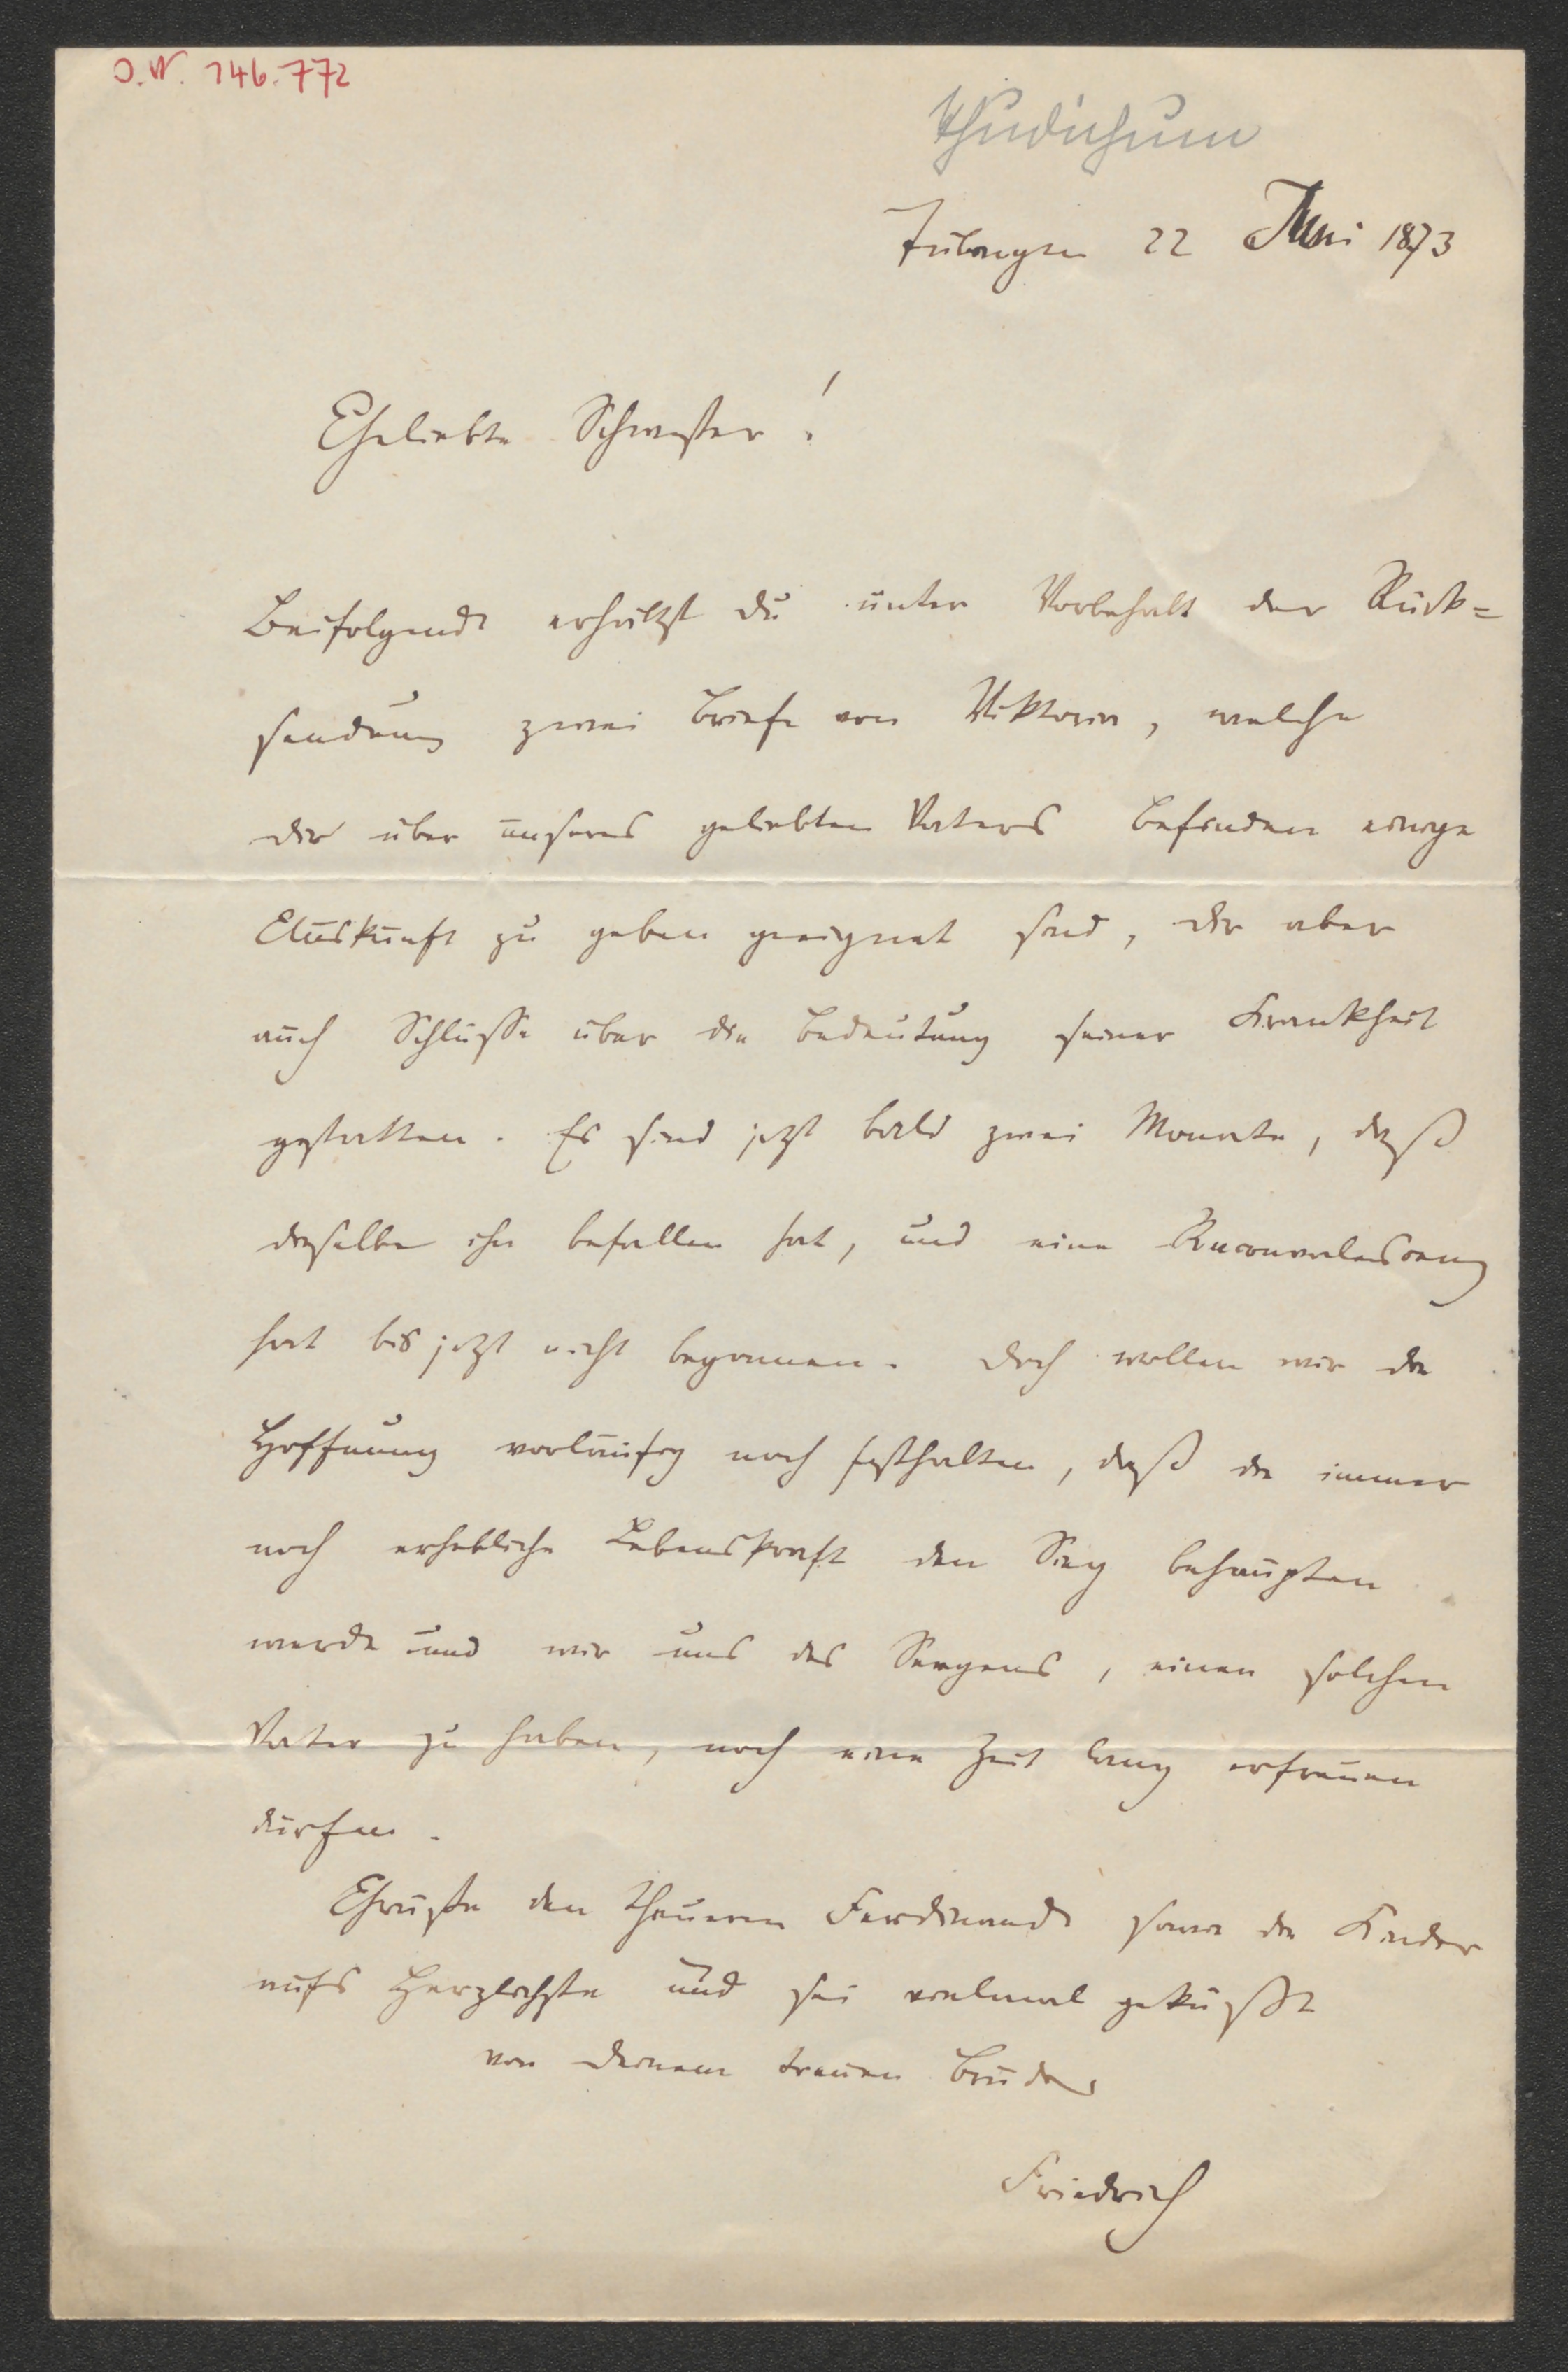 O.N. 146.772
Thudichum
Tübingen 22 Juni 1873
Geliebte Schwester!
Beifolgend erhältst du unter Vorbehalt der Rück=
sendung zwei Briefe von Viktorin, welche
dir über unseres geliebten Vaters Befinden einige
Auskunft zu geben geeignet sind, dir aber
auch Schlüsse über die Bedeutung seiner Krankheit
gestatten. Es sind jetzt bald zwei Monate, daß
dieselbe ihn befallen hat, und eine Reconvalescenz
hat bis jetzt nicht begonnen. Doch wollen wir die
Hoffnung vorläufig noch festhalten, daß die immer
noch erhebliche Lebenskraft den Sieg behaupten
werde und wir uns des Segens, einen solchen
Vater zu haben, noch eine Zeit lang erfreuen
dürfen.
Grüße den theueren Ferdinand sowie die Kinder
aufs Herzlichste und sei vielmal geküßt
von deinem treuen Bruder
Friedrich